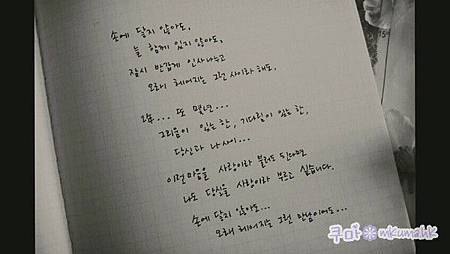 손에 닿지 않아도,
늘 함께 있지 않아도,
잠시 반갑게 인사나누고
오래 헤어지는 그런 사이라 해도.
오늘... 또 몇년...
그리움이 있는한, 기다림이 있는한,
당신과 나 사이...
이런마음을 사랑이라 불러도 된다면
나도 당신을 사랑이라 부르고 싶습니다.
손에 닿지 않아도...
오래 헤어지는 그런 만남이어도...
쿠마 mkumahk